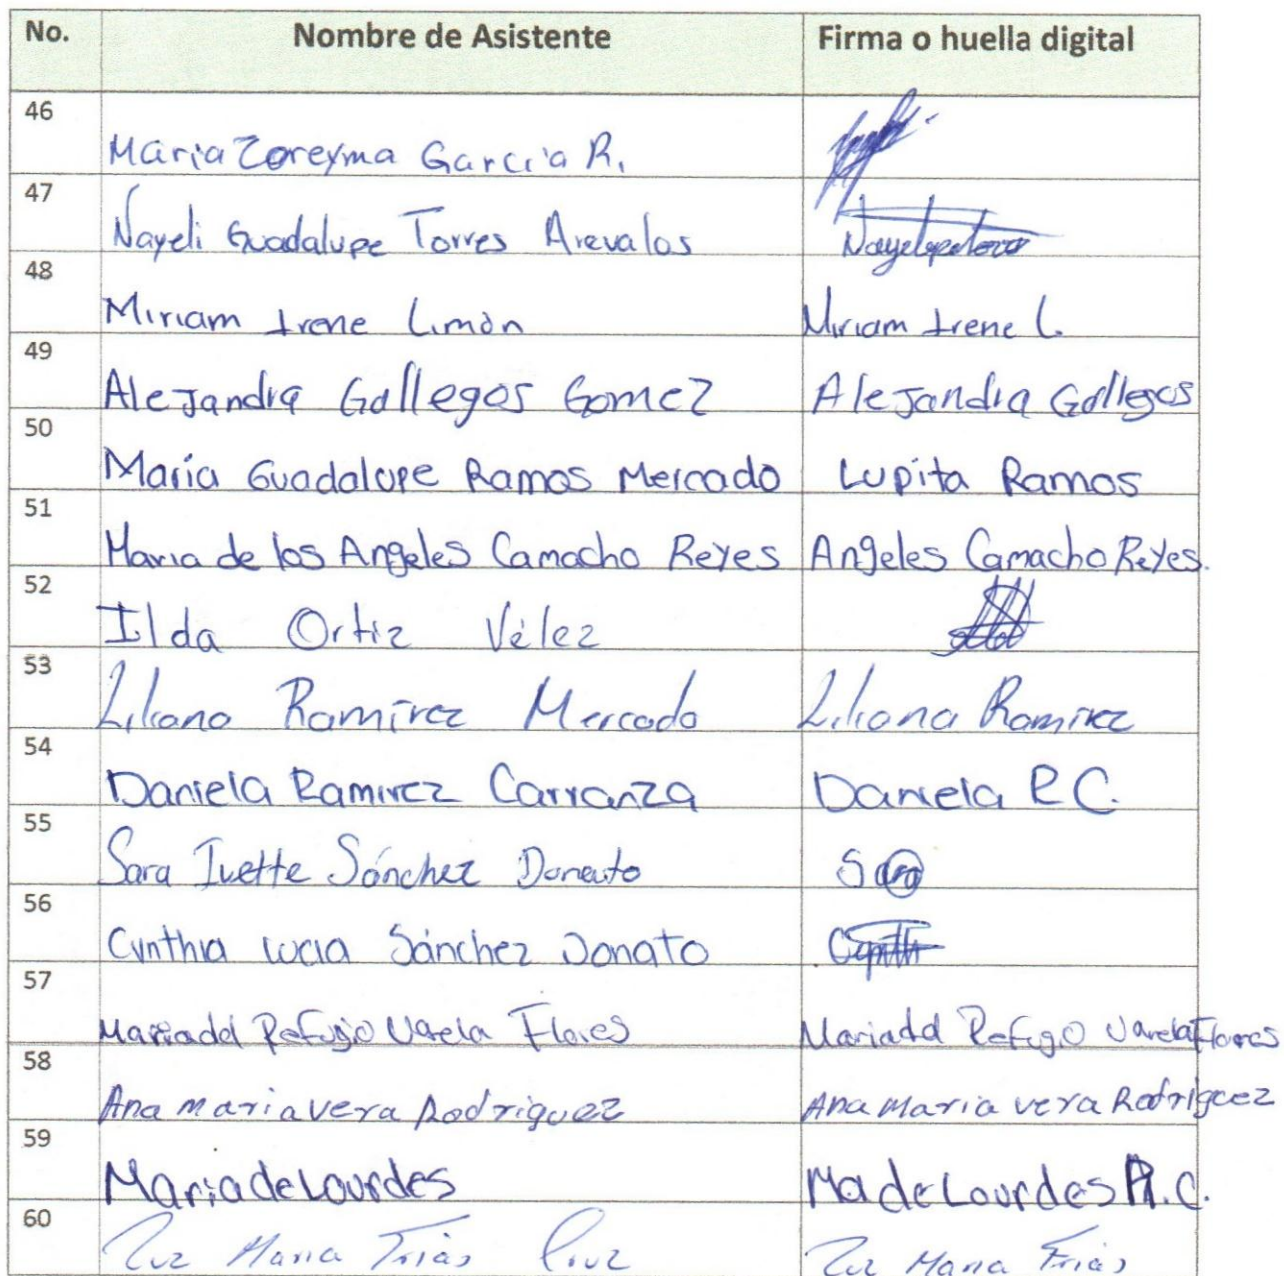 No. Nombre de Asistente Firma o huella digital
46 Maria Zoreyma García R.
47 Nayeli Guadalupe Torres Arevalos
48 Miriam Irene Limón Miriam Irene L.
49 Alejandra Gallegos Gomez Alejandra Gallegos
50 María Guadalupe Ramos Mercado Lupita Ramos
51 Maria de los Angeles Camacho Reyes Angeles Camacho Reyes.
52 Ilda Ortiz Vélez
53 Liliana Ramírez Mercado Liliana Ramírez
54 Daniela Ramirez Carranza Daniela R C.
55 Sara Ivette Sánchez Donato Sara
56 Cynthia Lucia Sánchez Donato Cynthi
57 Maria del Refugio Varela Flores Maria del Refugio Varela Flores
58 Ana maria vera Rodriguez Ana Maria vera Rodrígeez
59 Maria de Lourdes Ma de Lourdes R.C.
60 Luz Maria Frías Cruz Luz Maria Frías